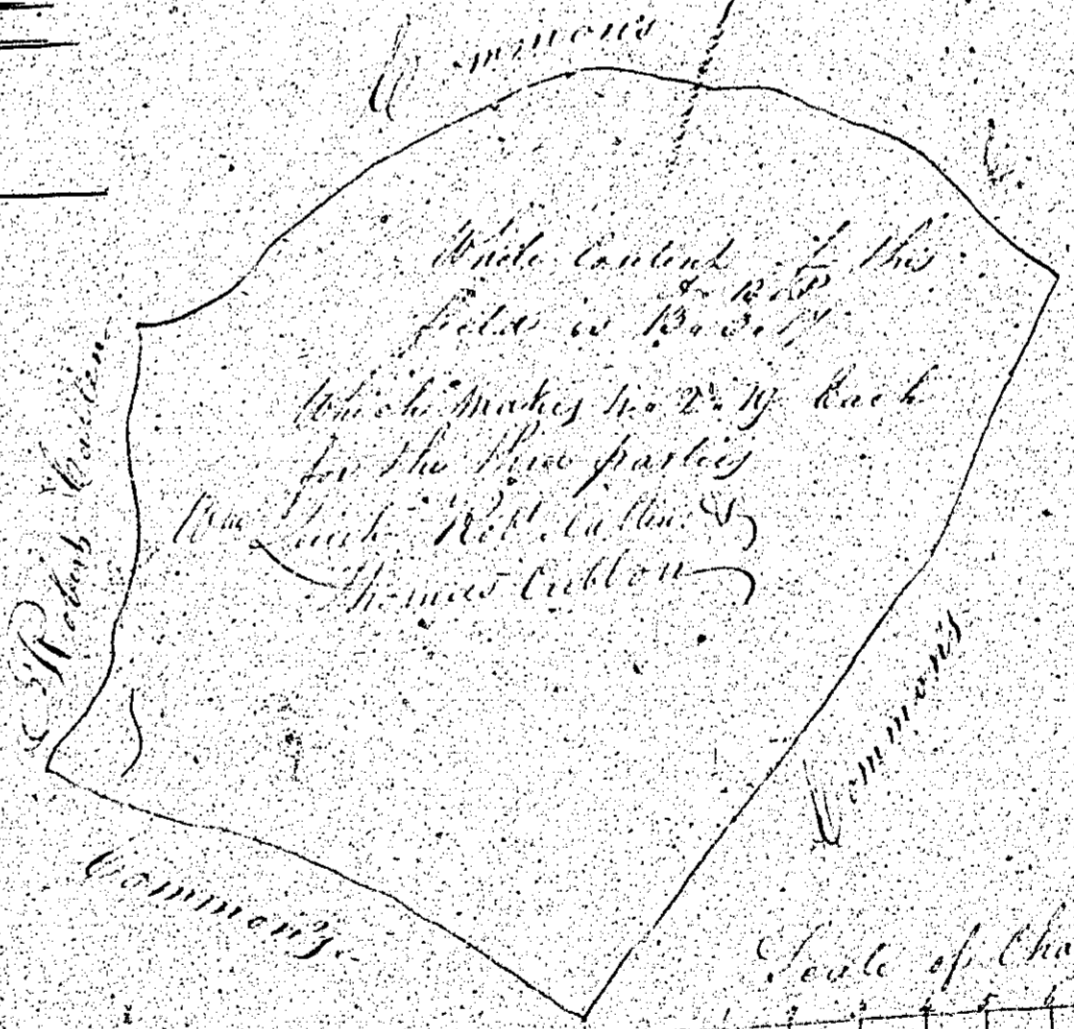 Commons
Whole Content of this
A. R. P
field is 13. 3. 17
Which makes 4. 2. 19 Each
for the three parties
Wm Robt Callin &
Thomas Cubbon
Robert
Commons
Commons
Scale of Cha
1 2 3 4 5 6